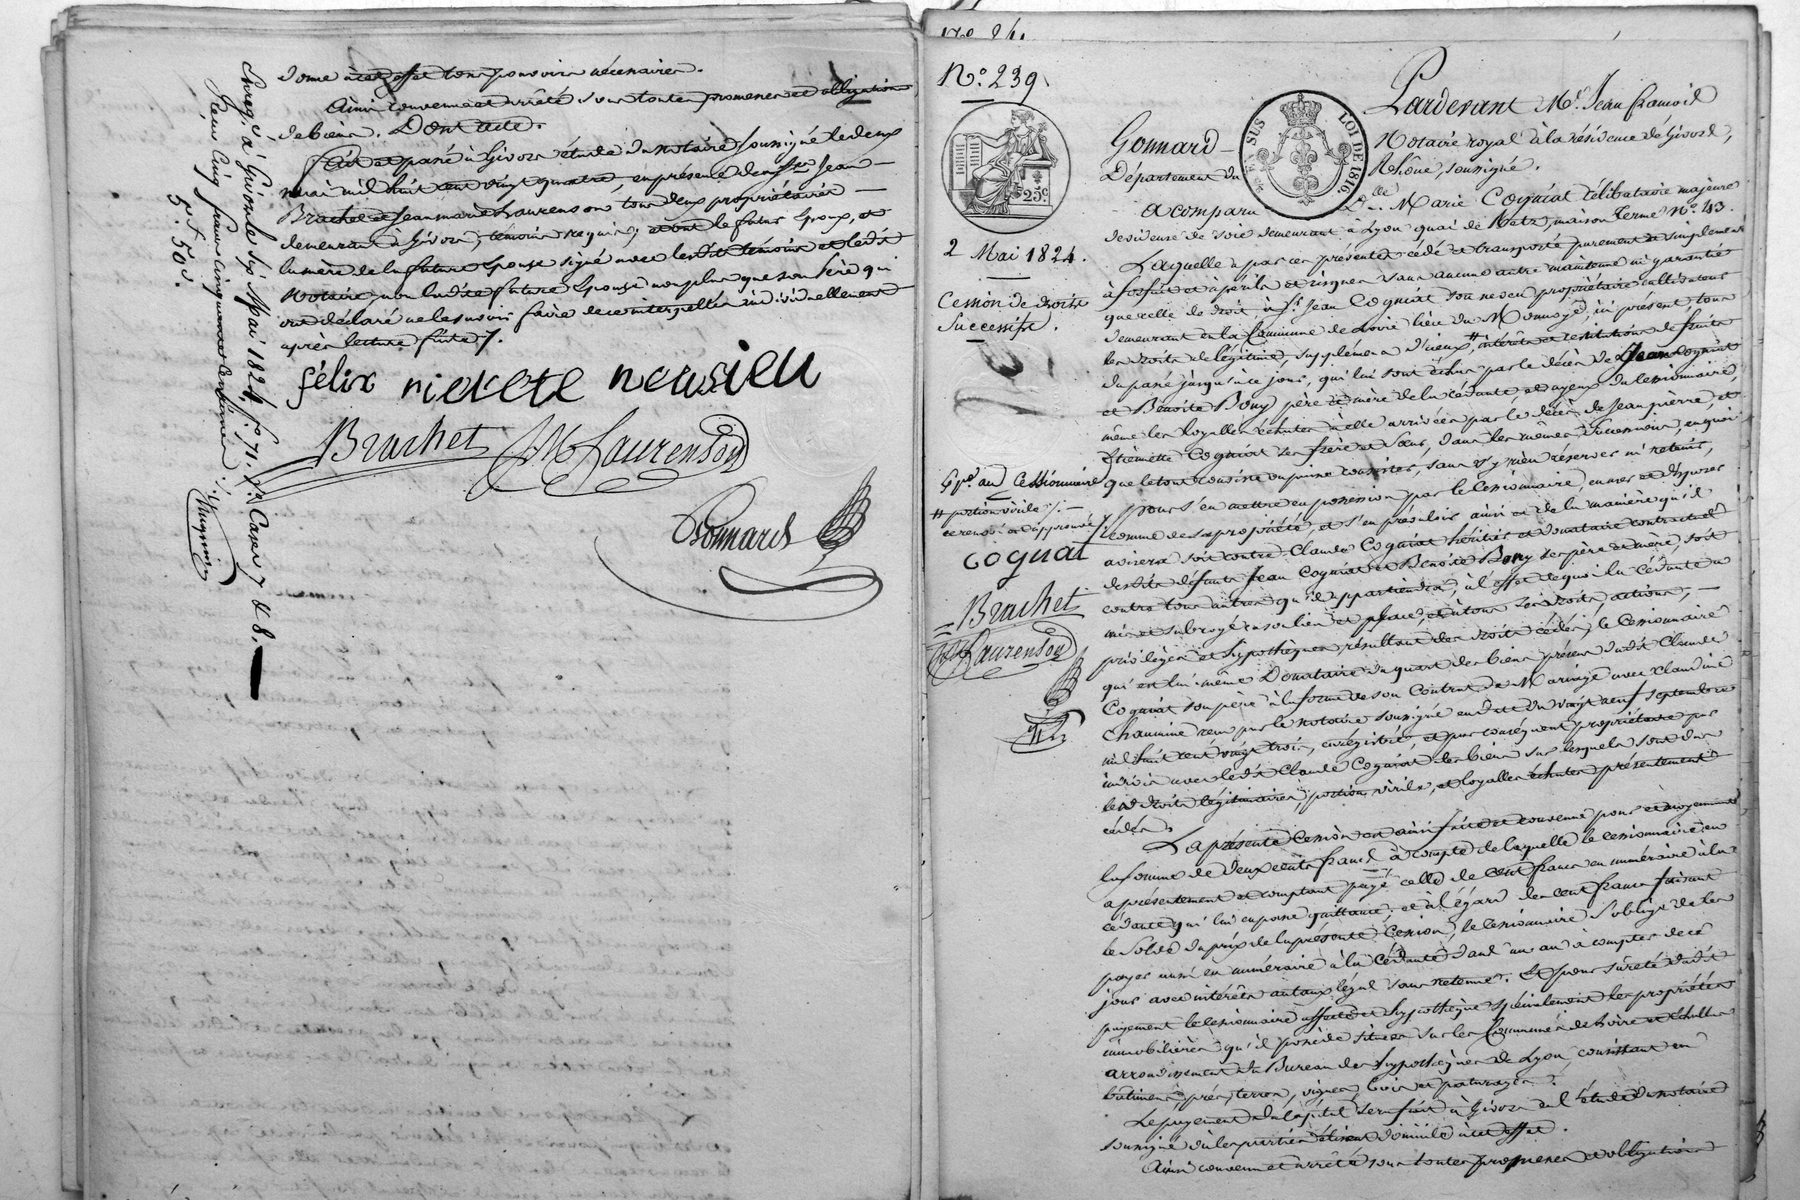 donne à cet effet tous pouvoirs nécessaires.
Ainsi convenu et arrêté sous toutes promesses et obligations
de biens. Dont acte.
Fait et passé à Givors étude du notaire soussigné le deux
mai mil huit cent vingt quatre, en présence de Jean
Brachet et Jean marie Laurenson tous deux propriétaires
demeurant à Givors, témoins requis; et ont le futur époux, et
la mère de la future épouse signé avec les témoins et ledit
Notaire, non ladite future épouse non plus que son père qui
ont déclaré ne le savoir faire de ce interpellés individuellement
après lecture faite ./.
félix nierete neusieu
Brachet JM Laurenson
Gonnard
Enreg.é à Givors le six Mai 1824, f.o 71. r.o Cases 7 & 8.
Reçu cinq francs cinquante centimes
5.f 50.c
N.o 239.
25.c
2 Mai 1824.
Cession de droits
Successifs.
G.de au Cessionnaire
# portion virile ./.
ce renvoi est approuvé
coguat
Brachet
JM Laurenson
SUS
LOI DE 1816.
Pardevant M.e Jean françois
Gonnard Notaire royal à la résidence de Givors,
Département du Rhône, soussigné.
A comparu D.lle Marie Cognat célibataire majeure
devideuse de soie demeurant à Lyon quai de Retz, maison Terme N.o 43.
Laquelle a par ces présentes cédé et transporté purement et simplement
à forfait et à périls et risques sans aucune autre maintenue ni garantie
que celle de droit, à S.r Jean Cognat son neveu propriétaire cultivateur
demeurant en la Commune de Loire lieu du, ici présent, tous
les droits de légitime, supplément d'iceux #, intérêts et restitutions de fruits
du passé jusqu'à ce jour, qui lui sont échus par le décès de Jean Cognat
et Benoite Bony père et mère de la cédante, et ayeux du cessionnaire,
même les loyalles échutes à elle arrivées par le décès de Jean pierre, et
Etiennette Cognat ses frère et sœur, dans les mêmes successions, en quoi
que le tout consiste ou puisse consister, sans s'y rien réserver ni retenir,
pour s'en mettre en possession par le cessionnaire, en user et disposer
comme de sa propriété, et s'en prévaloir ainsi et de la manière qu'il
avisera soit contre Claude Cognat héritier et donataire contractuel
desdits défunts Jean Cognat et Benoite Bony ses père et mère, soit
contre tous autres qu'il appartiendra, à l'effet de quoi la cédante a
mis et subrogé en son lieu et place, et à tous ses droits, actions,
privilèges et hypothèques, résultant des droits cédés, le cessionnaire
qui est lui-même Donataire du quart des biens présens dudit Claude
Cognat son père à la forme de son Contrat de Mariage avec Claudine
Chaumine reçu par le notaire soussigné en date du vingt neuf septembre
mil huit cent vingt trois, enregistré, et par conséquent propriétaire par
indivis avec ledit Claude Cognat des biens sur lesquels sont dus
lesd. droits légitimaires, portion virile, et loyalles échutes présentement
cédés.
La présente Cession est ainsi faite et convenue pour et moyennant
la somme de deux cents francs à compte de laquelle le cessionnaire en
a présentement et comptant payé celle de cent francs en numéraire à la
cédante qui lui en passe quittance, et à l'égard des cent francs faisant
le solde du prix de la présente Cession, le cessionnaire s'oblige de les
payer aussi en numéraire à la cédante dans un an à compter de ce
jour avec intérêts au taux légal sans retenue. Et pour sûreté dudit
payement le cessionnaire affecte et hypothèque spécialement les propriétés
immobilières qu'il possède situées sur les Communes de Loire et
arrondissement du Bureau des hypothèques de Lyon, consistant en
bâtimens, prés, terres, vignes, bois et paturages.
Le payement du capital sera fait à Givors en l'étude du notaire
soussigné où les parties élisent domicile à cet effet.
Ainsi convenu et arrêté sous toutes promesses et obligations